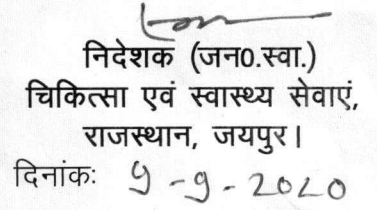 निदेशक (जन0.स्वा.)
चिकित्सा एवं स्वास्थ्य सेवाएं,
राजस्थान, जयपुर।
दिनांकः 9-9-2020